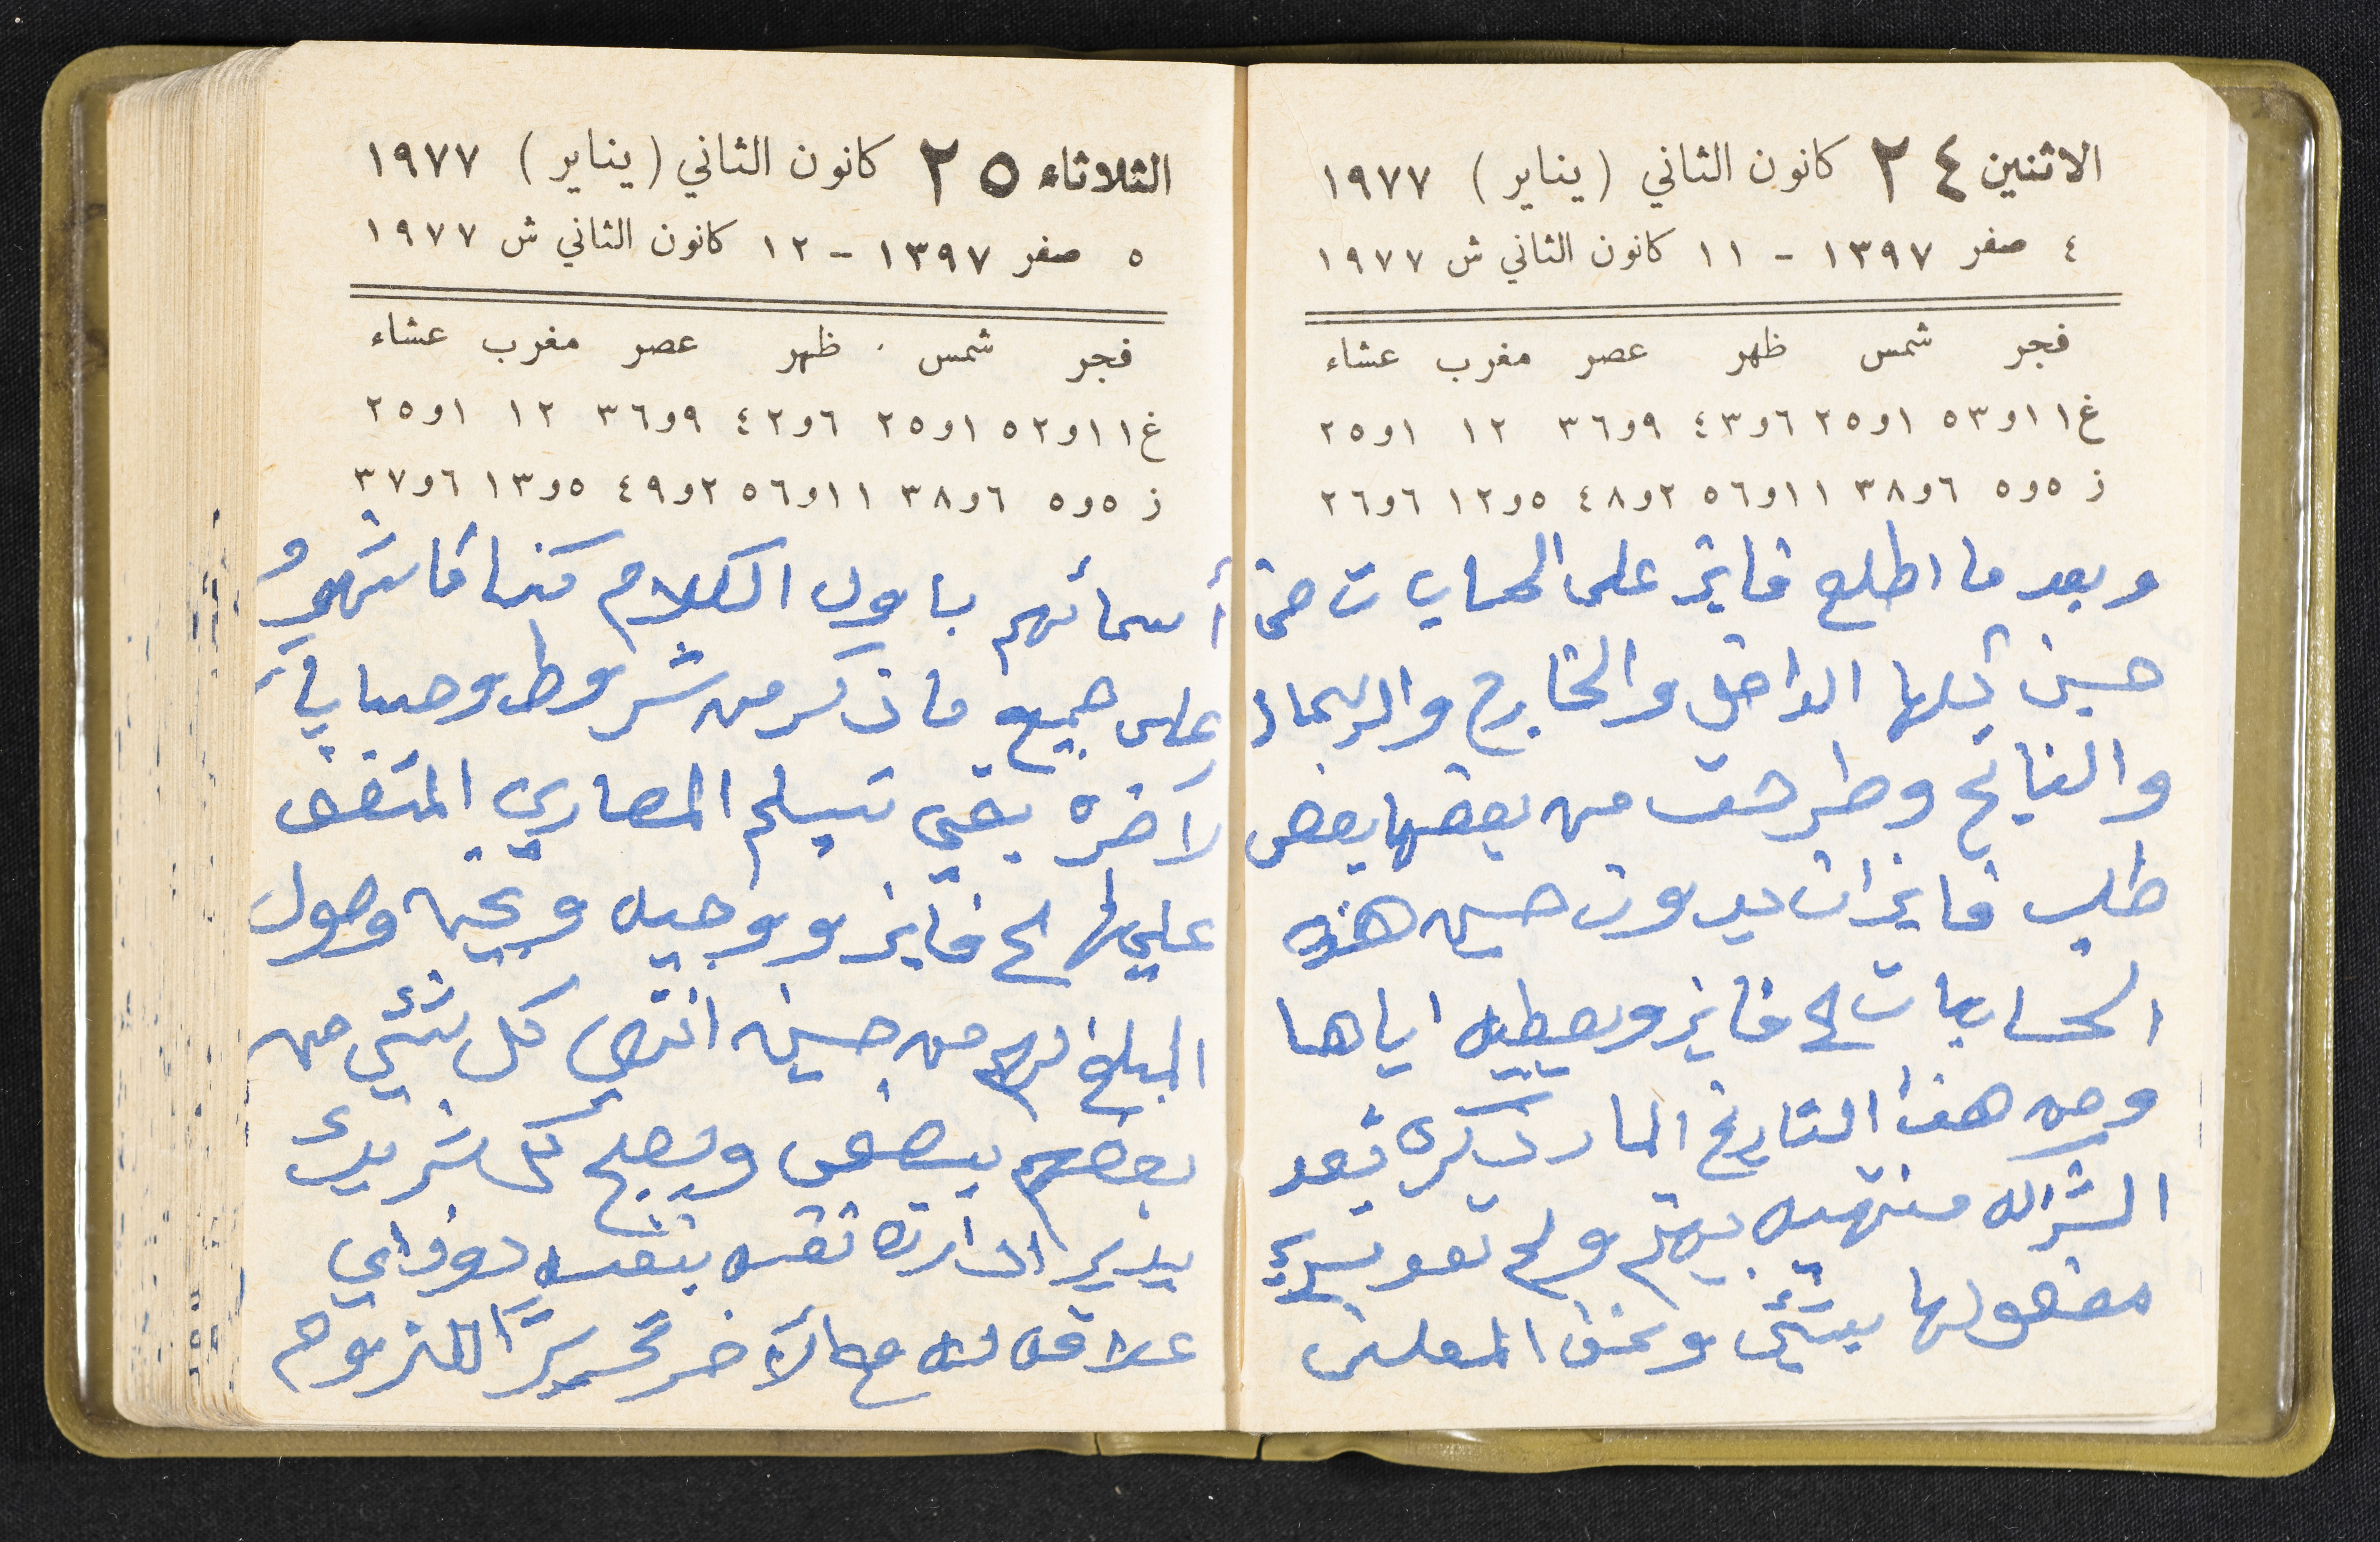 الاثنين ٢٤ كانون الثاني (يناير) ١٩٧٧
٤ صفر ١٣٩٧ - ١١ كانون الثاني ش ١٩٧٧
فجر شمس ظهر عصر مغرب عشاء
غ ١١و٥٣ ١و٢٥ ٦و٤٣ ٩و٣٦ ١٢ ١و٢٥
ز ٥و٥ ٦و٣٨ ١١و٥٦ ٢و٤٨ ٥و١٢ ٦و٢٦
وبعد ما اطلع فايز على الحسابات من
حسين كلها الداخل والخارج والرسمال
والناتج وطرحت من بعضها بعض
طلب فايز ان يدون حسين هذه
الحسابات لح فايز ويعطيه اياها
ومن هذا التاريخ المار ذكره تعد
الشراكه منتهيه بينهم ولم تعد يسرئ
مفعولها بشئ ونحن المعلنين
الثلاثاء ٢٥ كانون الثاني (يناير) ١٩٧٧
٥ صفر ١٣٩٧ - ١٢ كانون الثاني ش ١٩٧٧
فجر شمس ظهر عصر مغرب عشاء
غ ١١و٥٢ ١و٢٥ ٦و٤٢ ٩و٣٦ ١٢ ١و٢٥
ز ٥و٥ ٦و٣٨ ١١و٥٦ ٢و٤٩ ٥و١٣ ٦و٣٧
أسمائهم باول الكلام كنا قاشهر
على جميع ما ذكر من شروط وحسابات
لآخره بقي تسلم المصاري المتفق
عليها لح فايز ووجيه وبحين وصول
المبلغ لهم من حسين انتهى كل شئ من
بعضهم ببعض ويصبح كل شريك
يدير ادارة نفسه بنفسه دون اي
علاقه له مع الآخر تحريراً للزوم